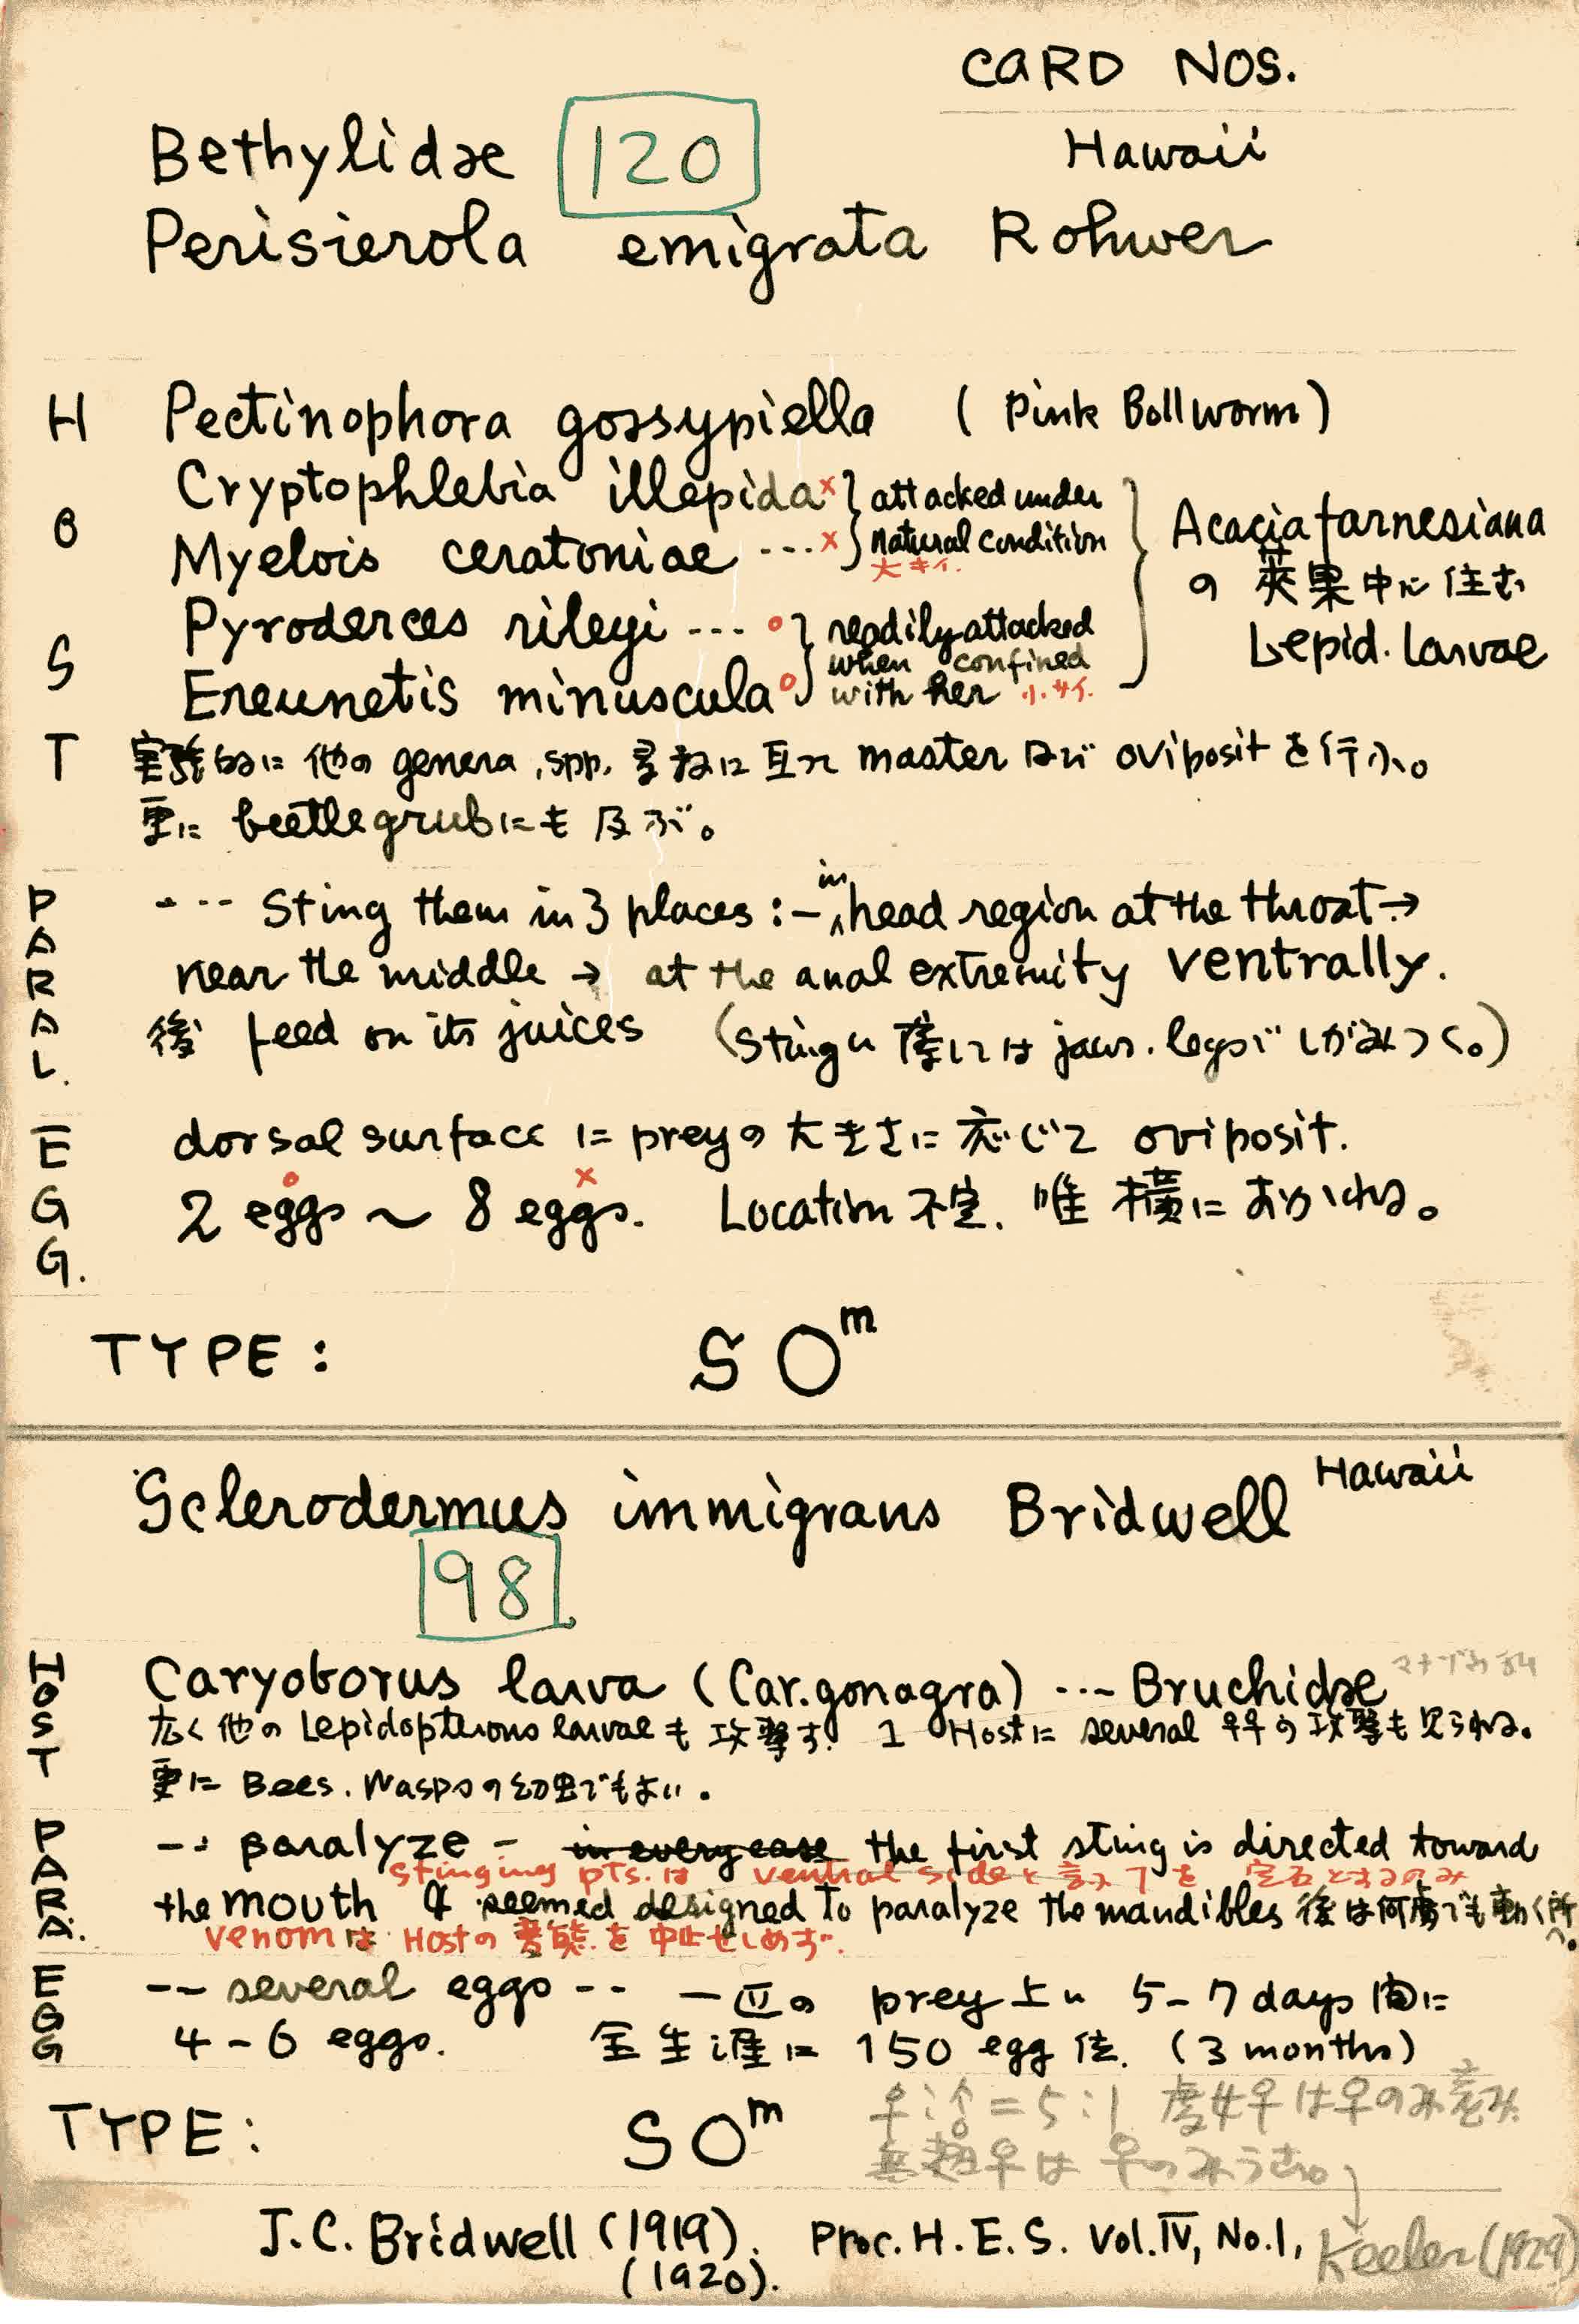 CARD NOS.
Bethylidae 120 Hawaii
Perisierola emigrata Rohwer
HOST
Pectinophora gossypiella (Pink Bollworm)
Cryptophlebia illepida × attacked under
Myelois ceratoniae --- × natural condition
大キイ.
Pyroderces rileyi --- ○ readily attacked
when confined
Ereunetis minuscula ○ with her 小サイ.
Acacia farnesiana
の莢果中に住む
Lepid. larvae
実験的に他の genera, spp. 多数に亙て master 及び oviposit を行ふ。
更に beetle grub にも及ぶ。
PARAL.
---- Sting them in 3 places :- in head region at the throat →
near the middle → at the anal extremity ventrally.
後 feed on its juices (Sting の際には jaws. legs で しがみつく。)
EGG.
dorsal surface に prey の大きさに応じて oviposit.
○ ×
2 eggs ~ 8 eggs. Location 不定. 唯 横におかれる。
TYPE: SOm
Sclerodermus immigrans Bridwell Hawaii
98
HOST
Caryoborus larva (Car. gonagra) --- Bruchidae
広く他の Lepidopterous larvae も攻撃す. 1 Host に several ♀♀の攻撃も見られる。
更に Bees. Wasps の幼虫でもよい。
PARA.
-- paralyze - in every case the first sting is directed toward
stinging pts. は ventral side
the mouth & seemed designed to paralyze the mandibles 後は何處でも動く所へ。
venom は Host の を中止せしめず.
EGG
-- several eggs -- 一匹の prey 上に 5-7 days 間に
4-6 eggs. 全生涯に 150 egg 位. (3 months)
TYPE: SOm
♀:♂ = 5:1 處女♀は
♀は ♀のみうむ。
J.C. Bridwell (1919). Proc. H.E.S. Vol. IV, No. 1, Keeler (1929)
(1920).